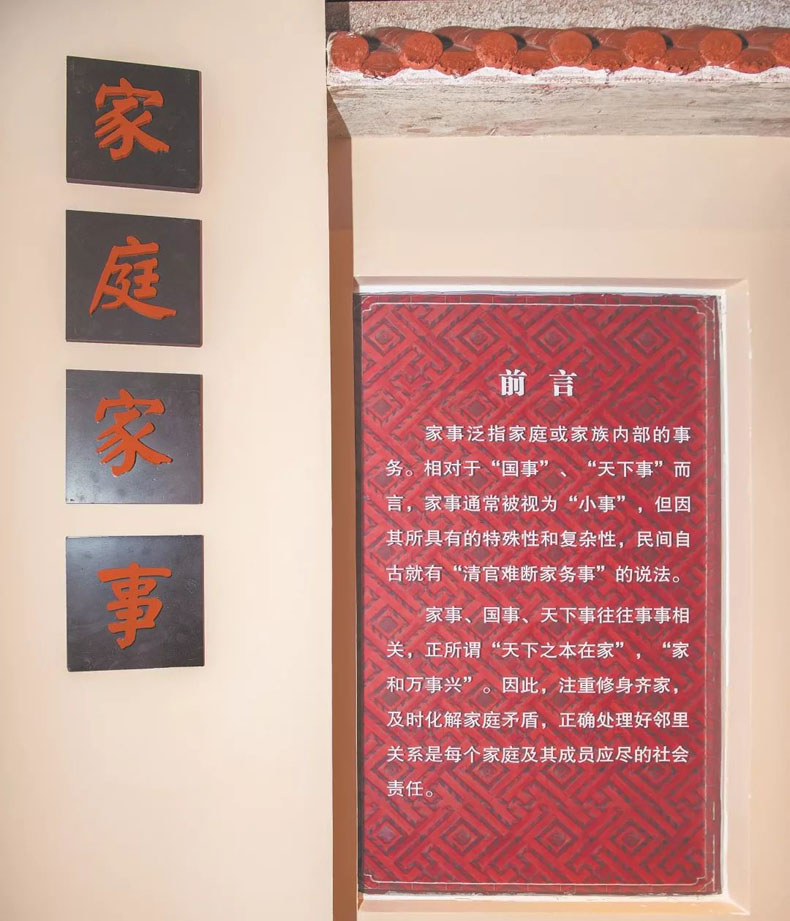 家
庭
家
事
前言
家事泛指家庭或家族内部的事
务。相对于“国事”、“天下事”而
言，家事通常被视为“小事”，但因
其所具有的特殊性和复杂性，民间自
古就有“清官难断家务事”的说法。
家事、国事、天下事往往事事相
关，正所谓“天下之本在家”，“家
和万事兴”。因此，注重修身齐家，
及时化解家庭矛盾，正确处理好邻里
关系是每个家庭及其成员应尽的社会
责任。